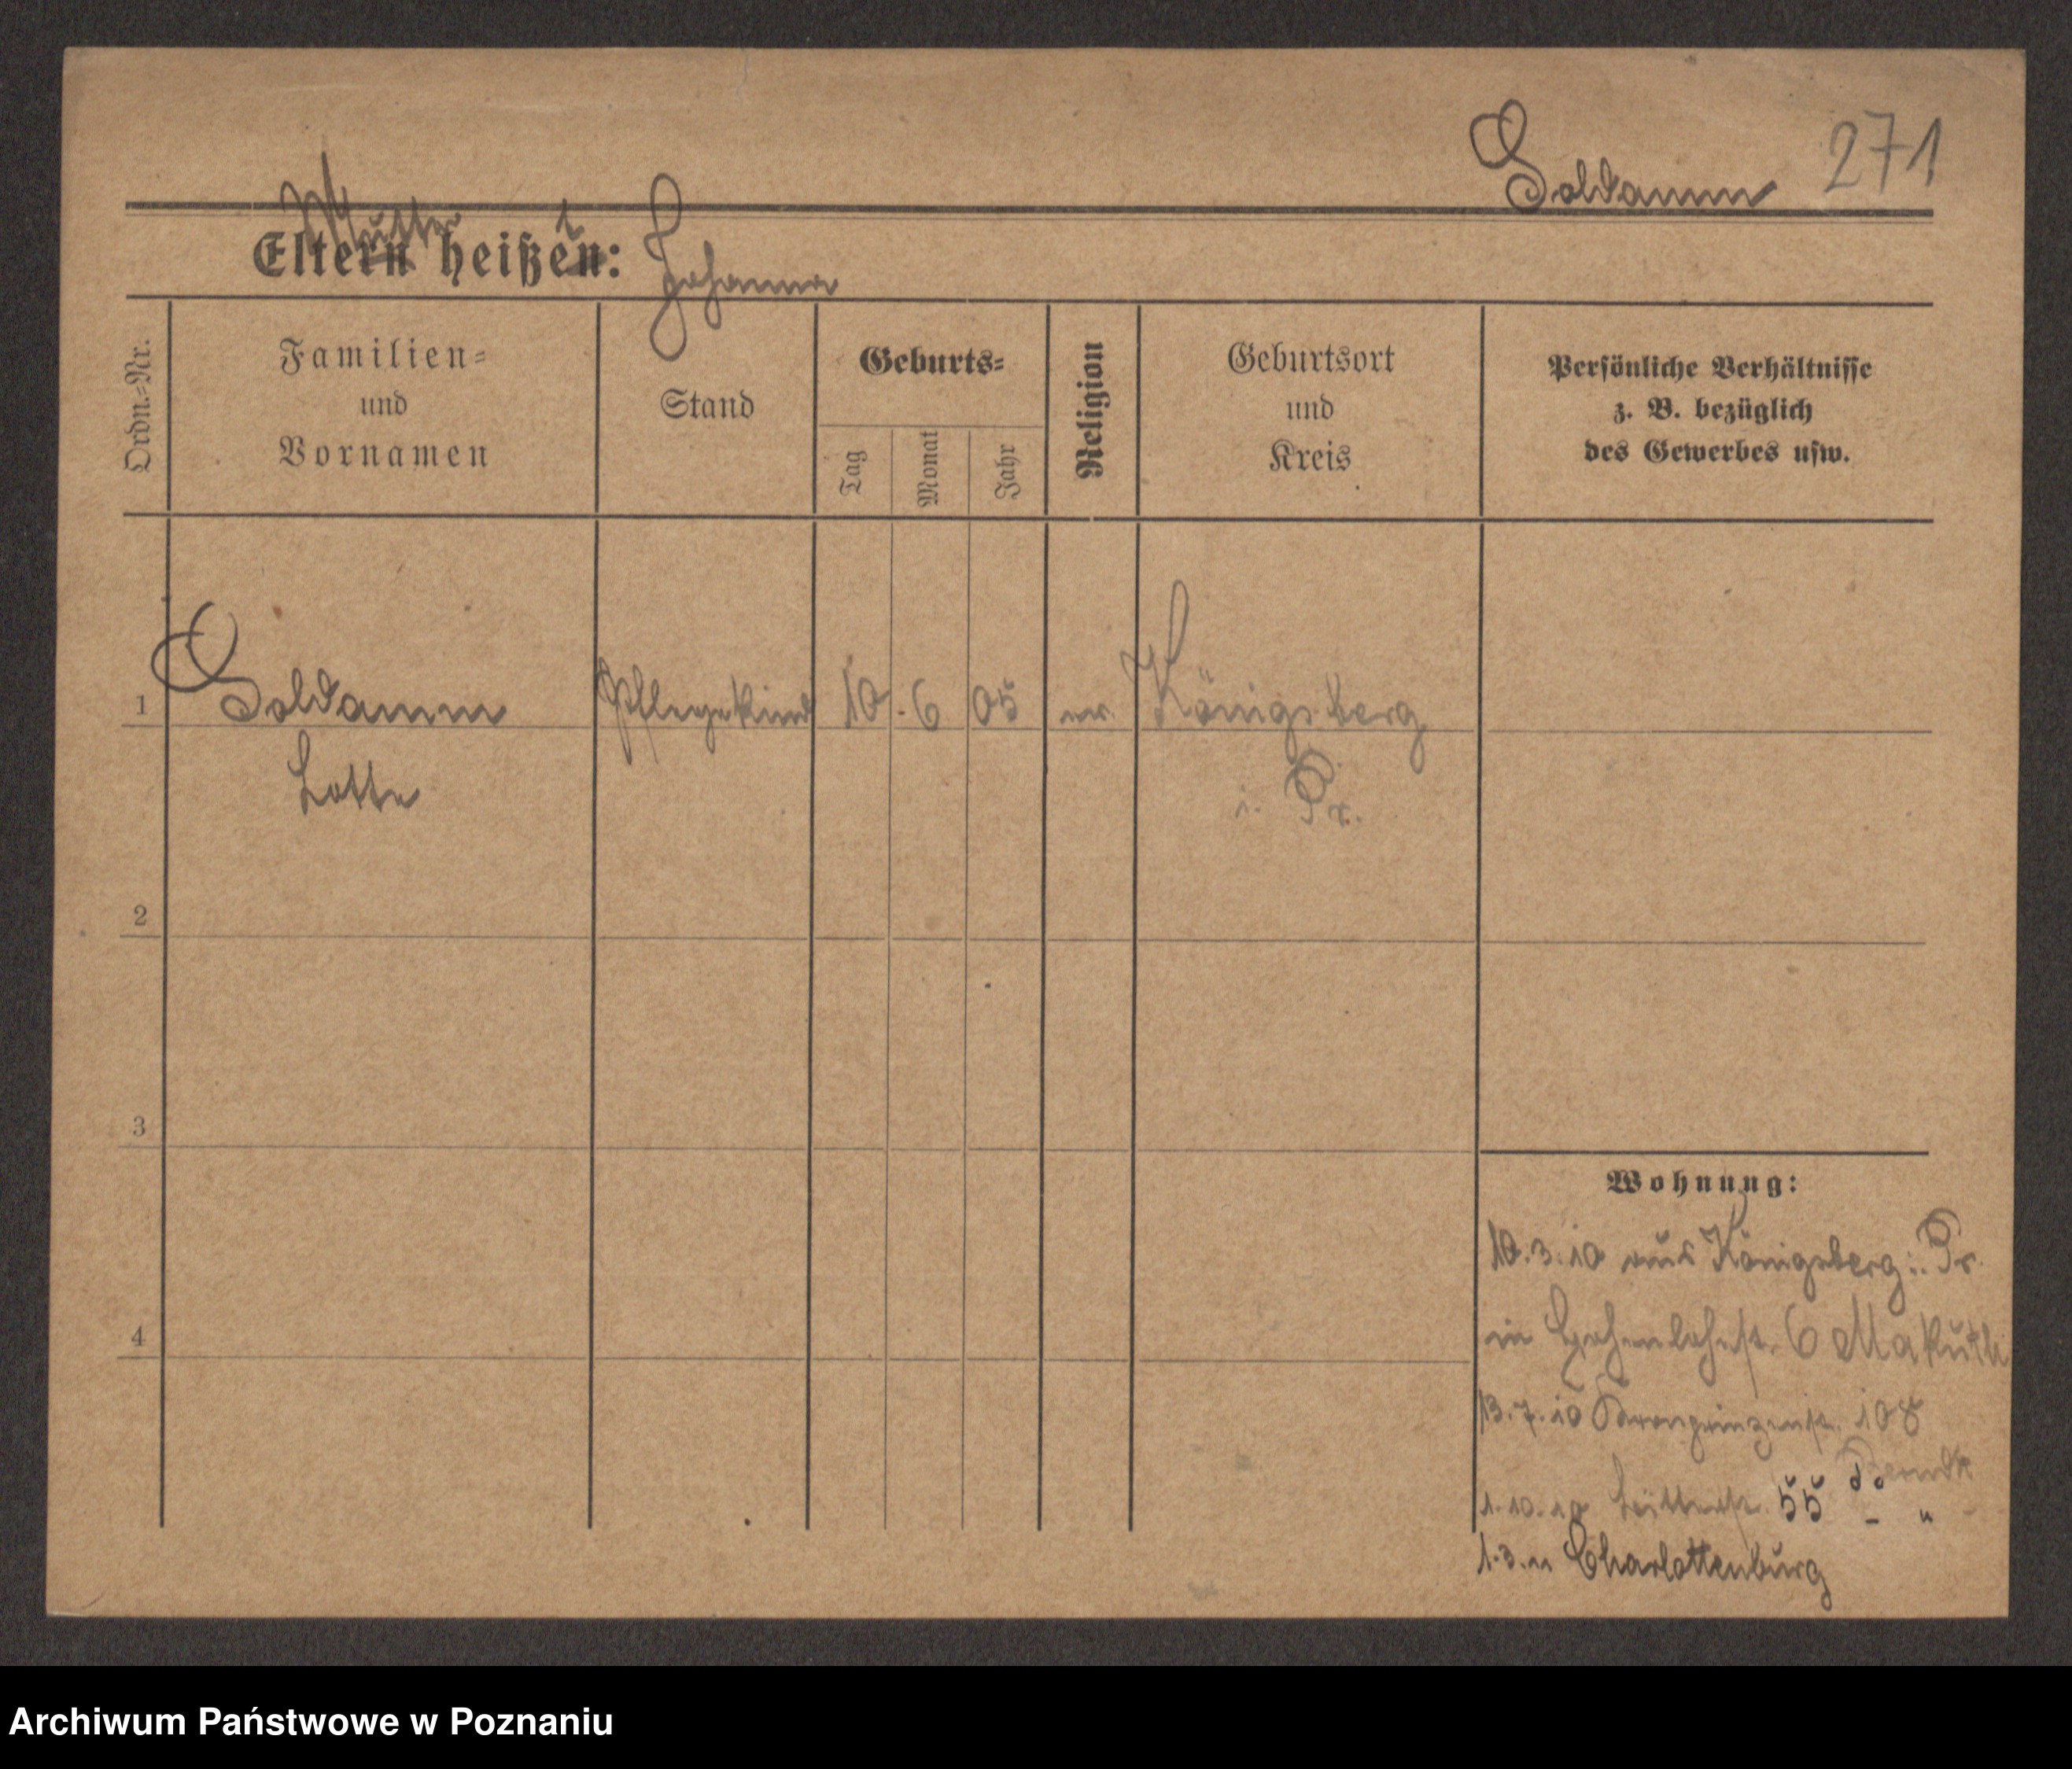 Soldamm 271
Mutter t
Eltern heißen: Johanna
Ordn.=Nr.
Familien=
und
Vornamen
Stand
Geburts=
Tag
Monat
Jahr
Religion
Geburtsort
und
Kreis
Persönliche Verhältnisse
z. B. bezüglich
des Gewerbes usw.
1 Soldamm Pflegekind 10. 6 05 ev. Königsberg
Lotte i. Pr.
2
3
4
Wohnung:
10.3.10 aus Königsberg i. Pr.
in Hohenlohestr. 6
13.7.10 Kronprinzenstr. 108
1.10.10 55 - "
1.3.11 Charlottenburg
Archiwum Państwowe w Poznaniu